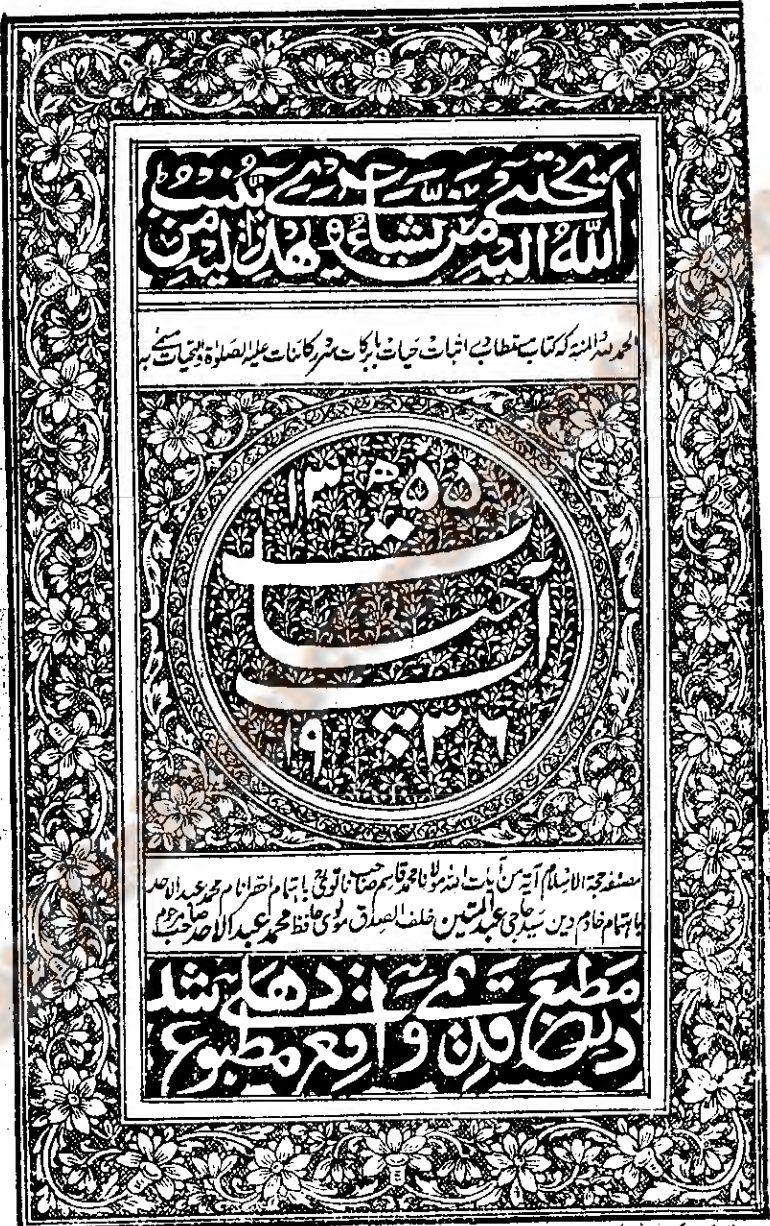 اَللّٰهُ يَجْتَبِيْ اِلَيْهِ مَنْ يَّشَآءُ وَيَهْدِيْ اِلَيْهِ مَنْ يُّنِيْبُ
الحمد للہ المنۃ کہ کتاب مستطاب در اثبات حیات بابرکات سرور کائنات علیہ الصلوٰۃ والتحیات مسمّٰی بہ
۱۳۵۵ھ
آب حیات
۱۹۳۶
مصنفہ حجۃ الاسلام آیۃ من آیات اللہ مولانا محمد قاسم صاحب نانوتوی باہتمام احقر انام محمد عبدالاحد
باہتمام خادم دین سید حاجی عبدالمتین خلف الصدق مولوی حافظ محمد عبدالاحد صاحب مرحوم
در مطبع قدیمی واقع دہلی مطبوع شد